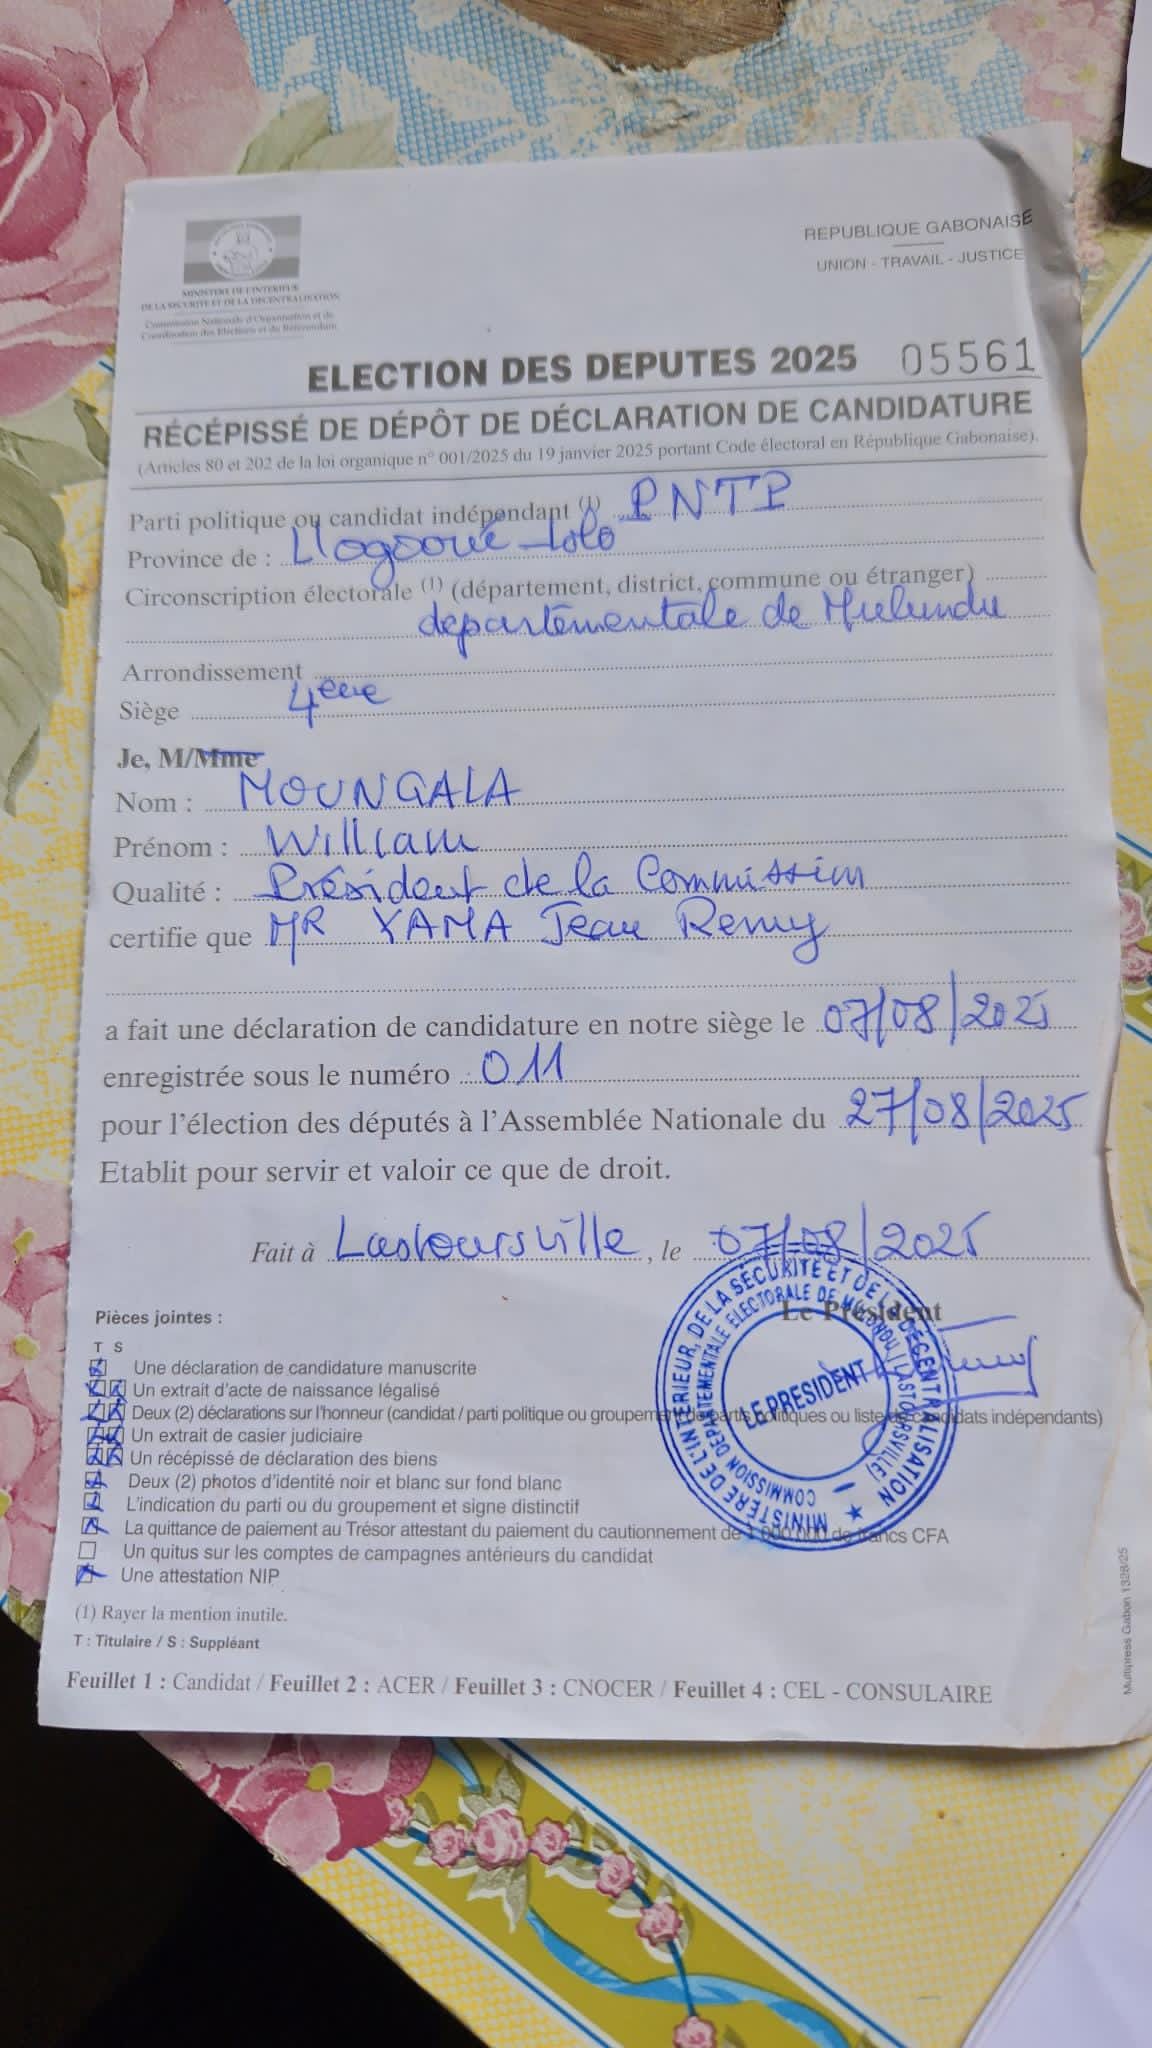 REPUBLIQUE GABONAISE
UNION - TRAVAIL - JUSTICE
MINISTERE DE L'INTERIEUR
DE LA SECURITE ET DE LA DECENTRALISATION
Commission Nationale d'Organisation et de
Coordination des Elections et du Référendum
ELECTION DES DEPUTES 2025 05561
RÉCÉPISSÉ DE DÉPÔT DE DÉCLARATION DE CANDIDATURE
(Articles 80 et 202 de la loi organique n° 001/2025 du 19 janvier 2025 portant Code électoral en République Gabonaise).
Parti politique ou candidat indépendant (1) PNTP
Province de : L'logooué-Lolo
Circonscription électorale (1) (département, district, commune ou étranger)
departementale de Mulundu
Arrondissement
Siège 4eme
Je, M/Mme
Nom : MOUNGALA
Prénom : William
Qualité : Président de la Commission
certifie que MR YAMA Jean Remy
a fait une déclaration de candidature en notre siège le 07/08/2025
enregistrée sous le numéro 011
pour l'élection des députés à l'Assemblée Nationale du 27/08/2025
Etablit pour servir et valoir ce que de droit.
Fait à Lastoursville, le 07/08/2025
Le Président
MINISTÈRE DE L'INTÉRIEUR, DE LA SÉCURITÉ ET DE LA DÉCENTRALISATION
COMMISSION DEPARTEMENTALE ELECTORALE DE MULUNDU (LASTOURSVILLE)
LE PRESIDENT
Pièces jointes :
T S
Une déclaration de candidature manuscrite
Un extrait d'acte de naissance légalisé
Deux (2) déclarations sur l'honneur (candidat / parti politique ou groupement de partis politiques ou liste de candidats indépendants)
Un extrait de casier judiciaire
Un récépissé de déclaration des biens
Deux (2) photos d'identité noir et blanc sur fond blanc
L'indication du parti ou du groupement et signe distinctif
La quittance de paiement au Trésor attestant du paiement du cautionnement de 1 000 000 de francs CFA
Un quitus sur les comptes de campagnes antérieurs du candidat
Une attestation NIP
(1) Rayer la mention inutile.
T : Titulaire / S : Suppléant
Feuillet 1 : Candidat / Feuillet 2 : ACER / Feuillet 3 : CNOCER / Feuillet 4 : CEL - CONSULAIRE
Multipress Gabon 1328/25